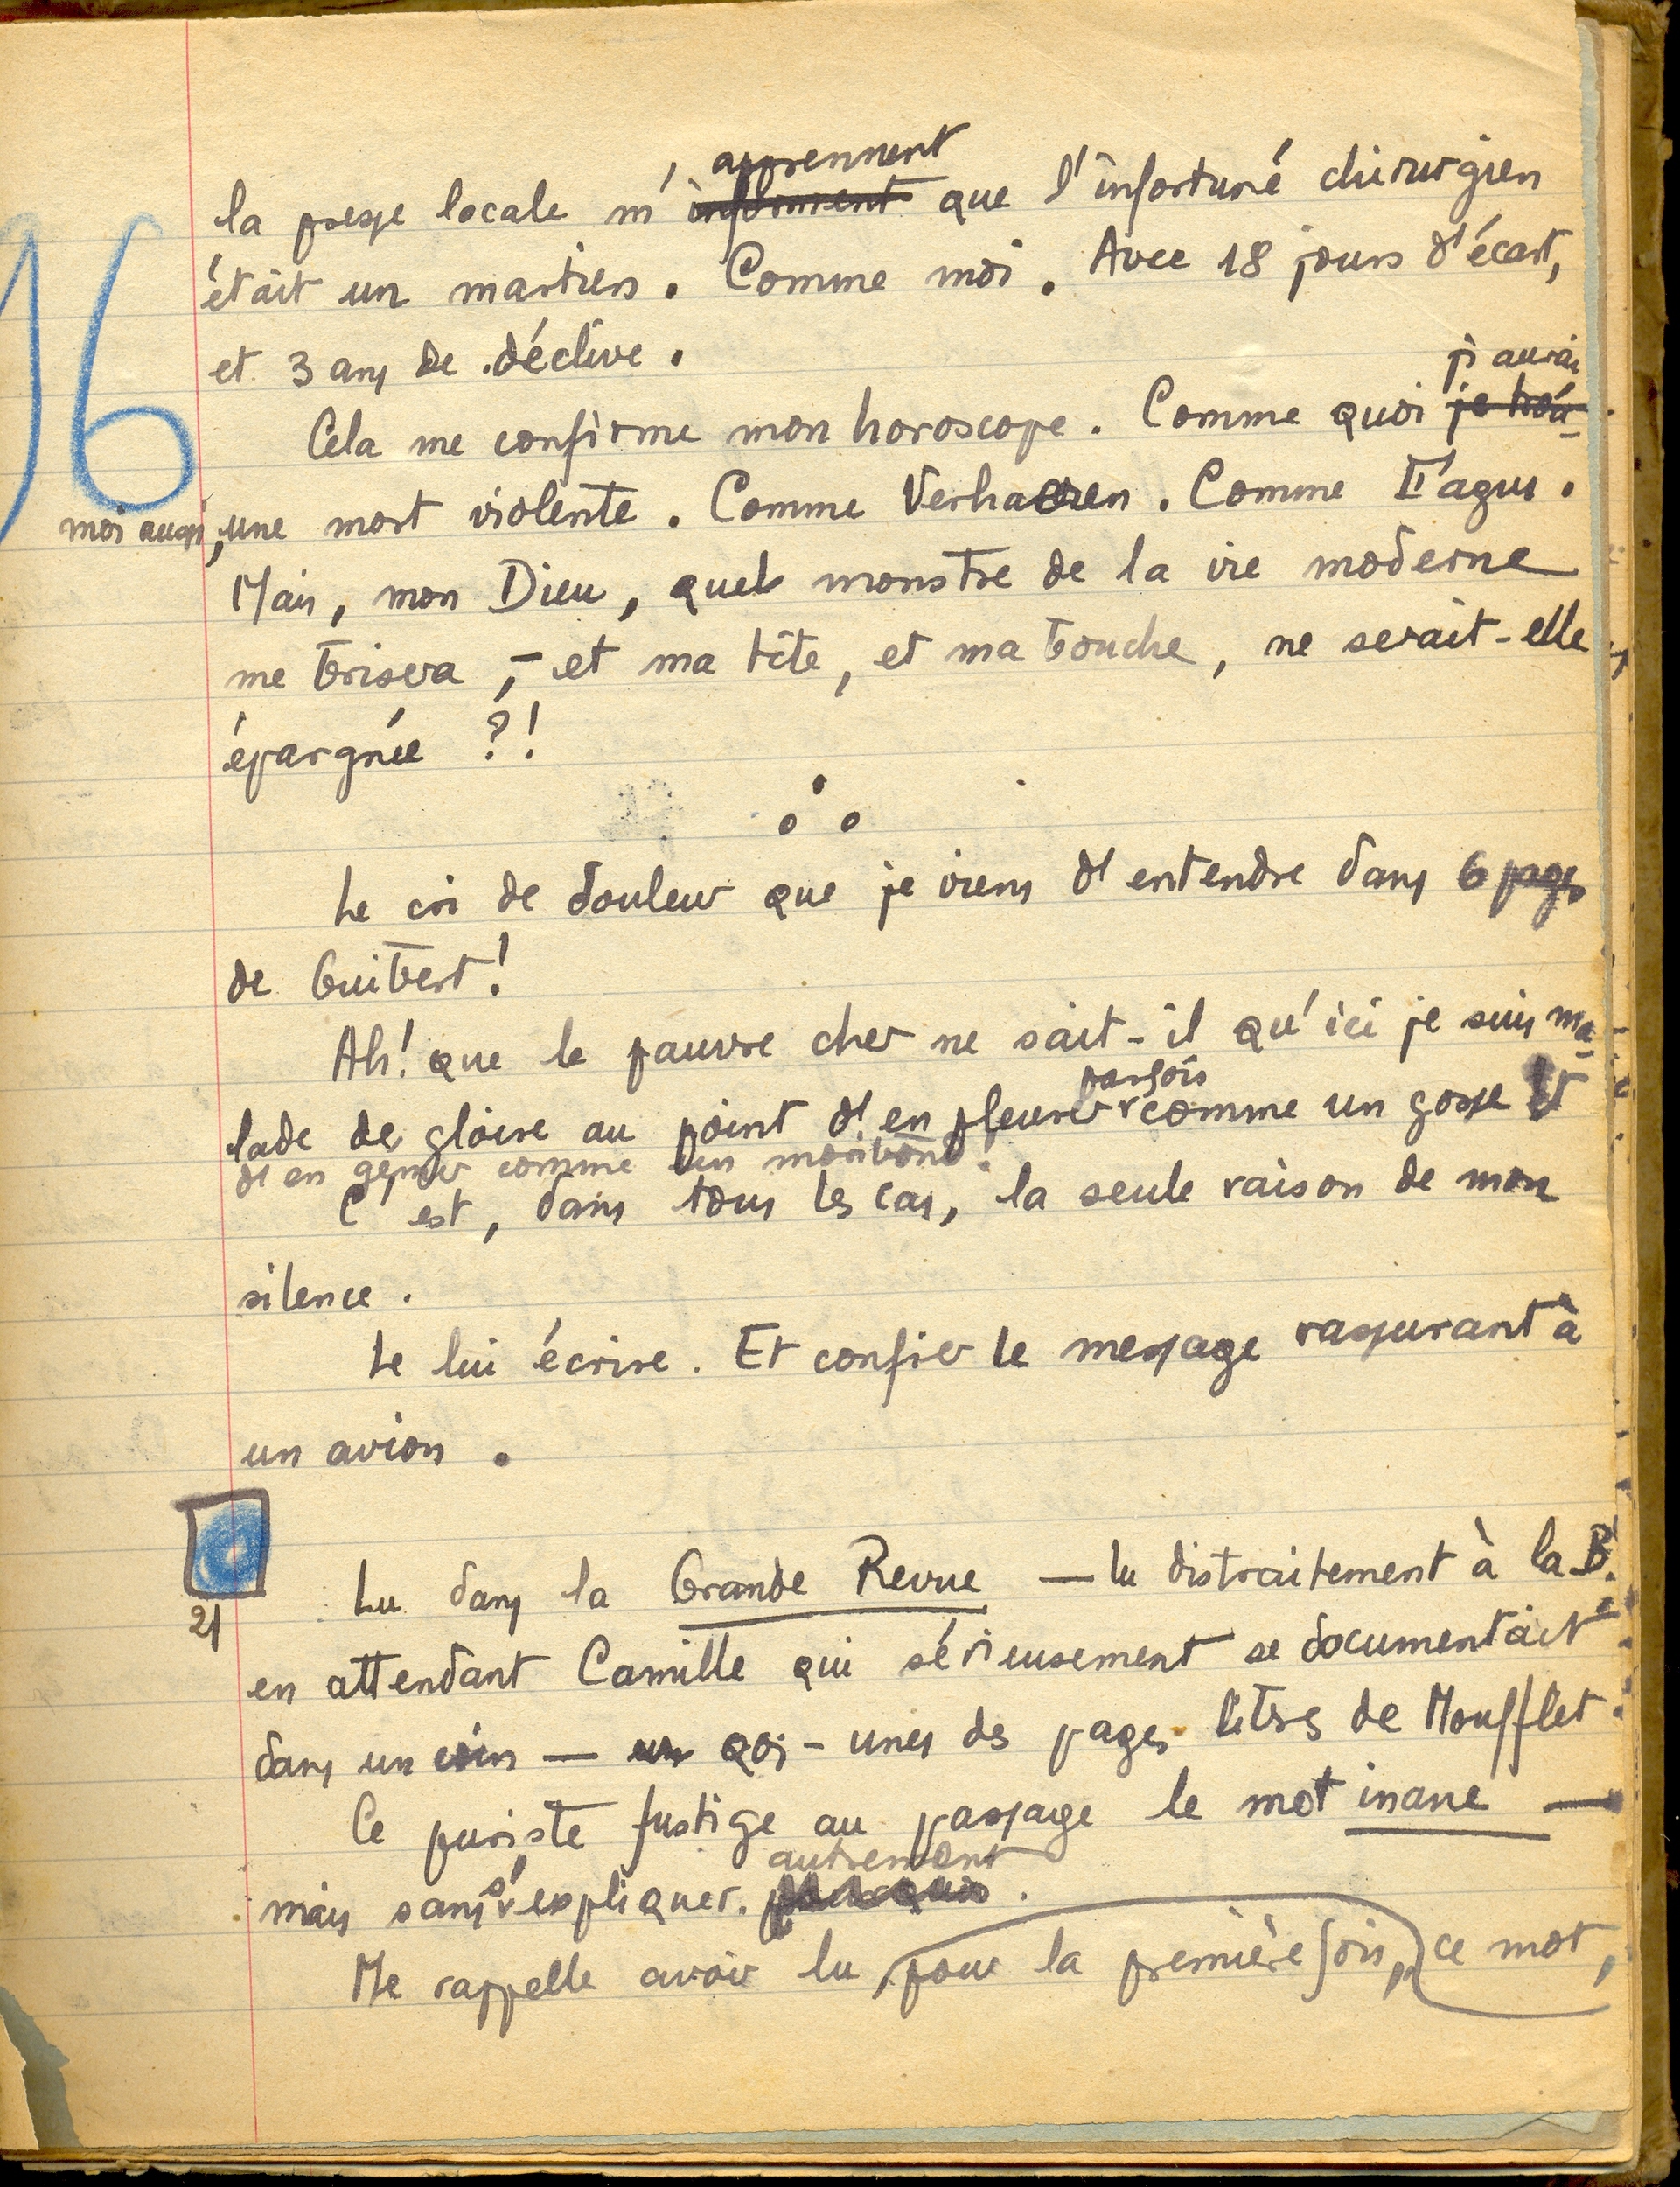 16
la presse locale m'apprennent informent que l'infortuné chirurgien
était un martien. Comme moi. Avec 18 jours d'écart,
et 3 ans de déclive.
Cela me confirme mon horoscope. Comme quoi j'aurai je trou-
moi aussi, une mort violente. Comme Verhaeren. Comme Fagus.
Mais, mon Dieu, quel monstre de la vie moderne
me brisera, – et ma tête, et ma bouche, ne serait-elle
épargnée ?!
Le cri de douleur que je viens d'entendre dans 6 pages
de Guibert!
Ah! que le pauvre cher ne sait-il qu'ici je suis ma-
lade de gloire au point d'en pleurer parfois comme un gosse et
d'en gémir comme un moribond!
C'est, dans tous les cas, la seule raison de mon
silence.
Le lui écrire. Et confier le message rassurant à
un avion.
21
Lu dans la Grande Revue — lu distraitement à la B.
en attendant Camille qui sérieusement se documentait
dans un coin — qqs-unes des pages littres de Moufflet.
Ce puriste fustige au passage le mot inane —
mais sans s'expliquer autrement.
Me rappelle avoir lu, pour la première fois, ce mot,